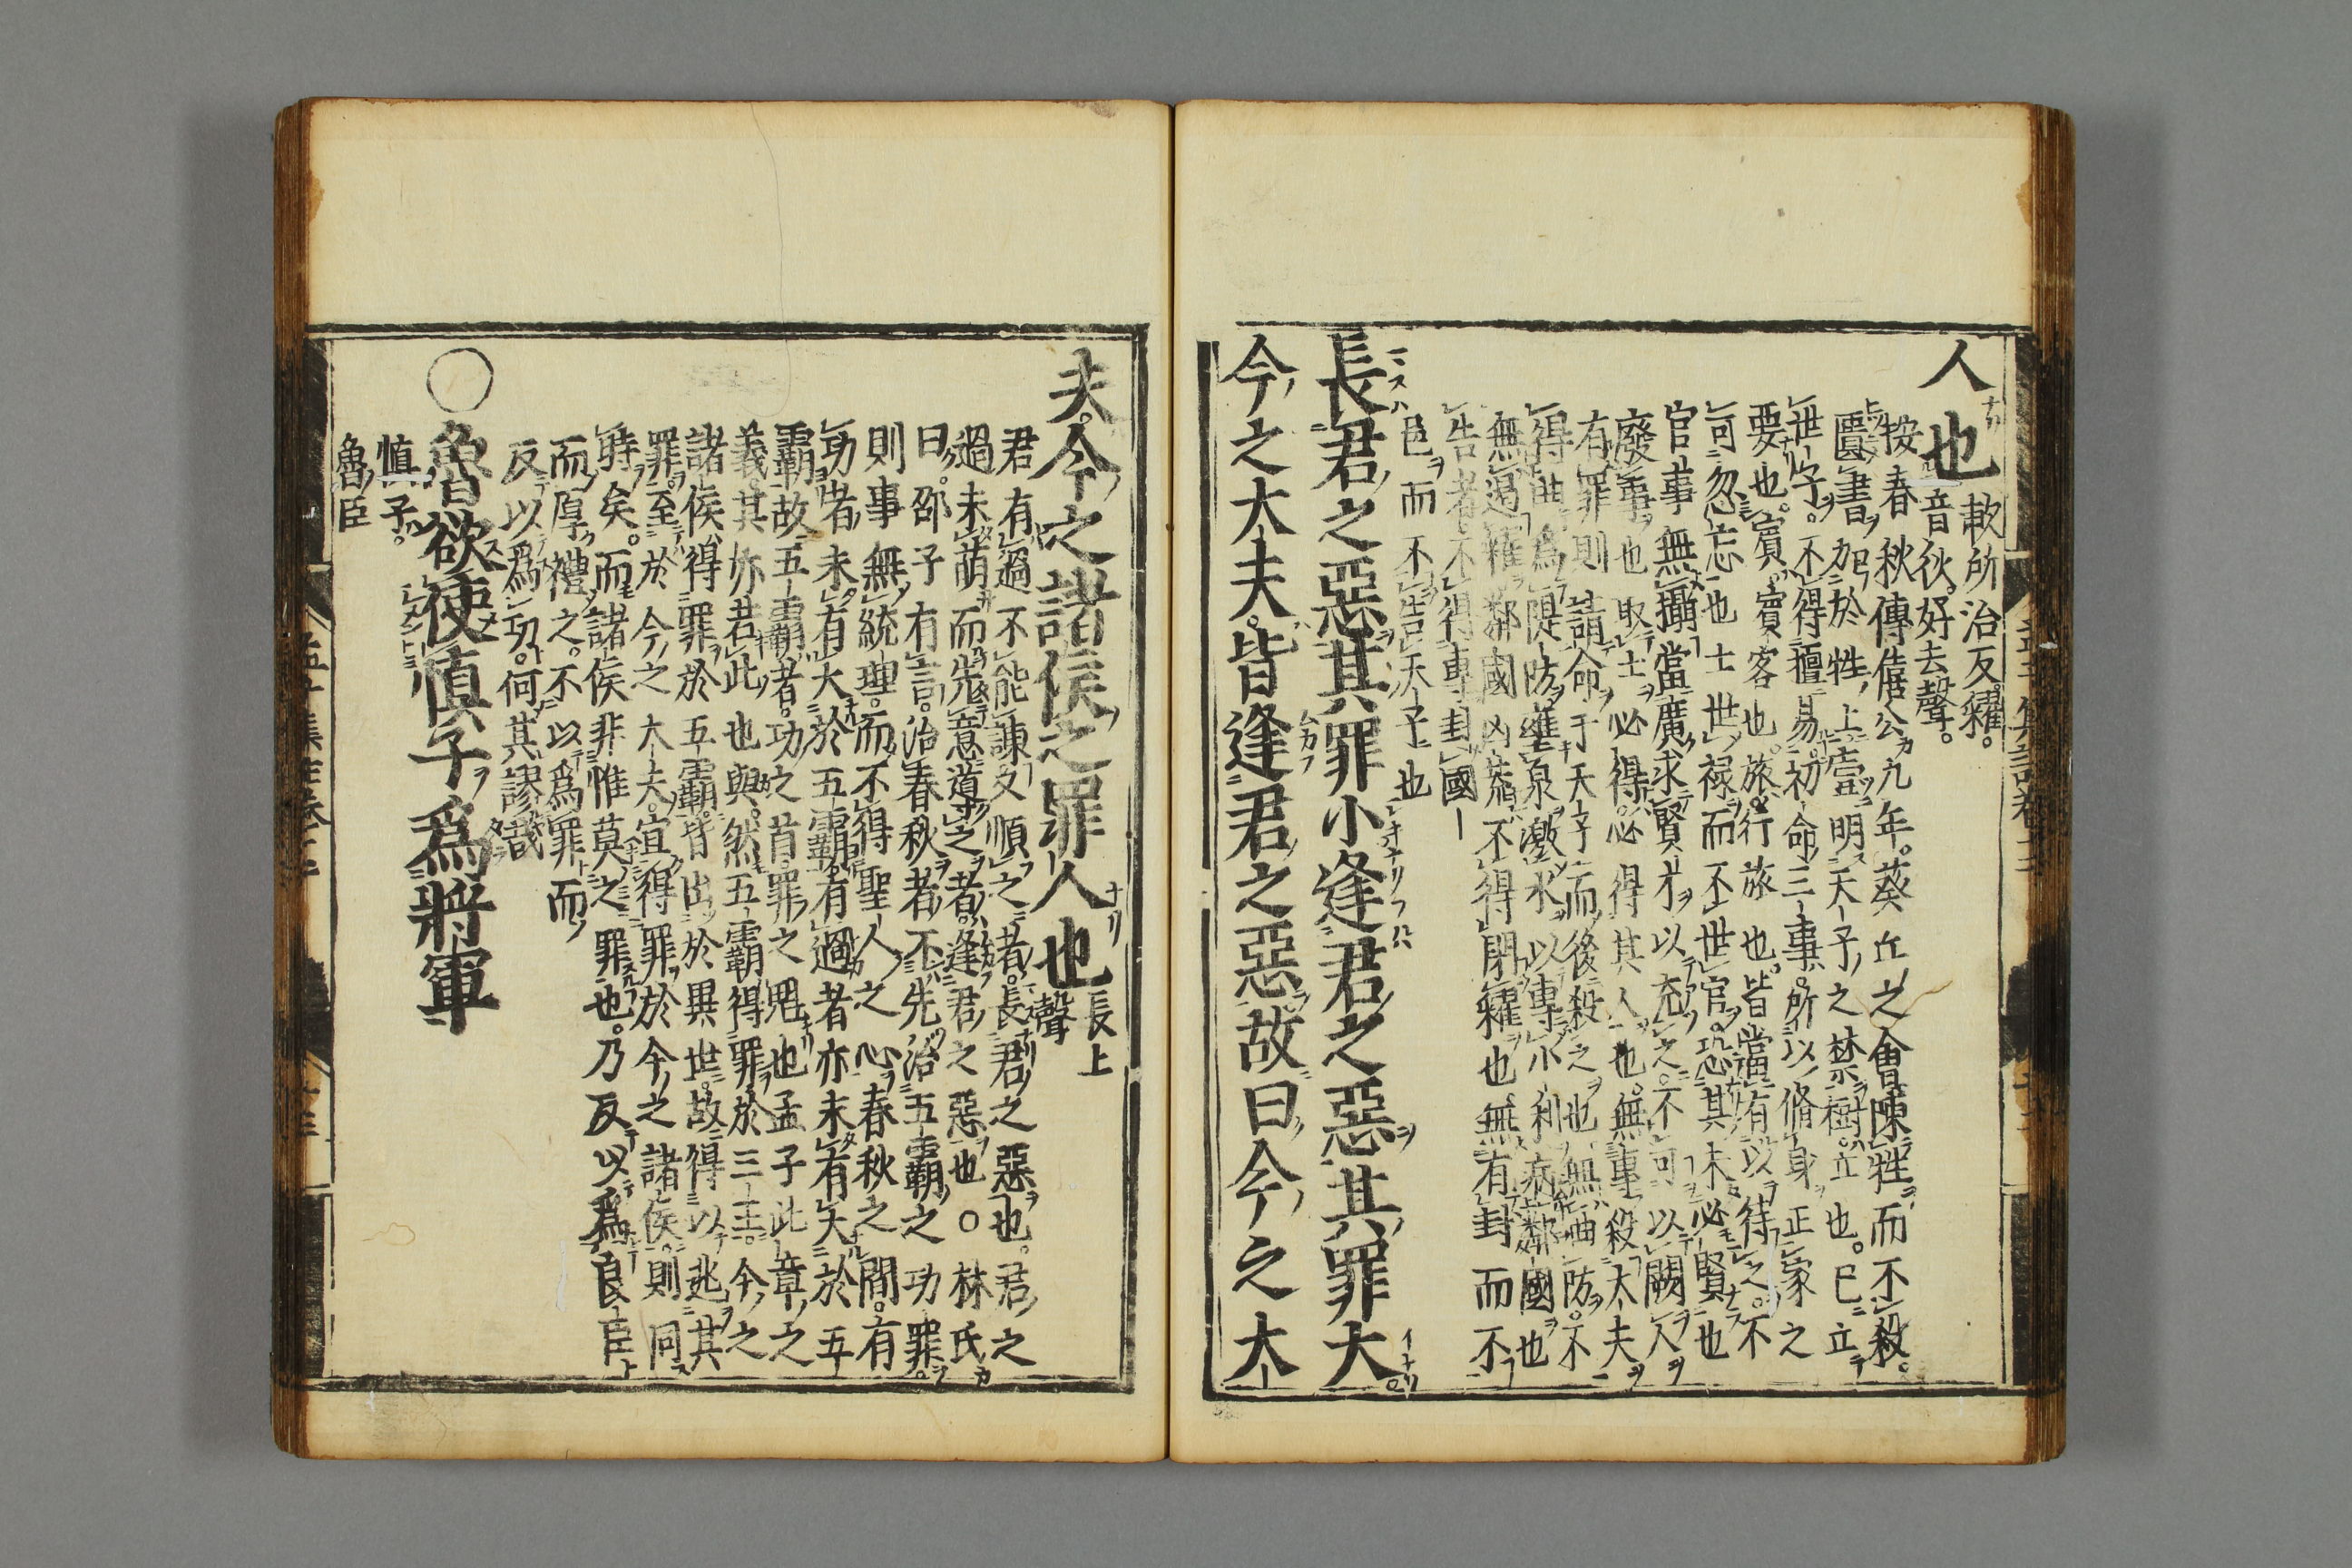 人也 歃所治反糴
音狄好去聲
按春秋傳僖公九年葵丘之會陳牲而不殺
讀書加於牲上壹明天子之禁樹立也已立
世子不得擅易初命三事所以脩身正家之
要也賓賓客也旅行旅也皆當有以待之不
可忽忘也士世祿而不世官恐其未必賢也
官事無攝當廣求賢才以充之不可以闕人
廢事也取士必得必得其人也無專殺大夫
有罪則請命于天子而後殺之也無曲防不
得曲爲隄防壅泉激水以專小利病鄰國也
無遏糴鄰國凶荒不得閉糴也無有封而不
告者不得專封國
邑而不告天子也
長君之惡其罪小逢君之惡其罪大
今之大夫皆逢君之惡故曰今之大
夫今之諸侯之罪人也 長上
聲
君有過不能諫又順之者長君之惡也君之
過未萌而先意道之者逢君之惡也○林氏
曰邵子有言治春秋者不先治五霸之功罪
則事無統理而不得聖人之心春秋之間有
功者未有大於五霸有過者亦未有大於五
霸故五霸者功之首罪之魁也孟子此章之
義其亦若此也與然五霸得罪於三王今之
諸侯得罪於五霸皆出於異世故得以逃其
罪至於今之大夫宜得罪於今之諸侯則同
時矣而諸侯非惟莫之罪也乃反以爲良臣
而厚禮之不以爲罪而
反以爲功何其謬哉
○魯欲使慎子爲將軍
慎子
魯臣